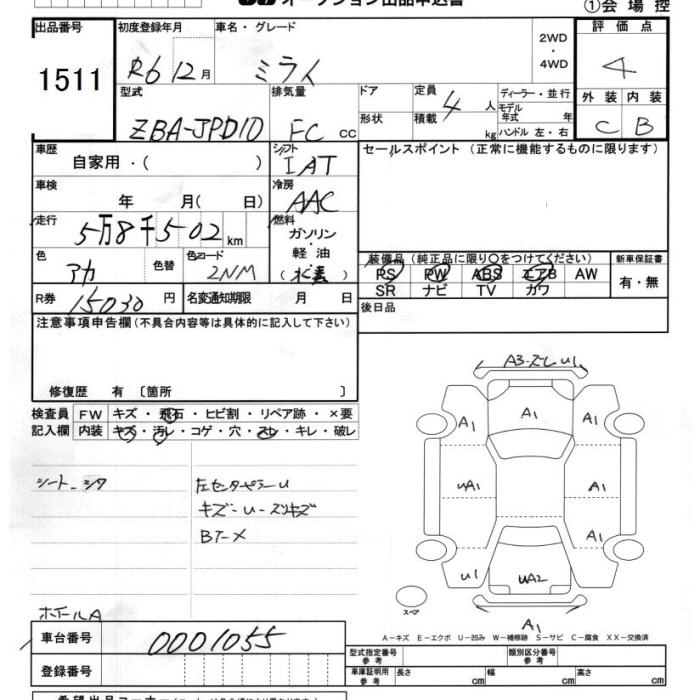 オークション出品申込書 ①会場控
出品番号 初度登録年月 車名・グレード 2WD ・ 4WD 評価点
1511 R6 12月 ミライ 4
型式 排気量 ドア 定員 4人 ディーラー・並行 外装 内装
ZBA-JPD10 FC cc 形状 積載 kg モデル年式 年 C B
ハンドル 左・右
車歴 自家用・( ) シフト IAT セールスポイント (正常に機能するものに限ります)
車検 年 月( 日) 冷房 AAC
走行 5万8千502km 燃料 ガソリン・軽油・(水素)
色 アカ 色替 色コード 2NM 装備品 (純正品に限り○をつけてください) 新車保証書
PS PW ABS エアB AW 有・無
SR ナビ TV カワ
R券 15030円 名変通知期限 月 日 後日品
注意事項申告欄 (不具合内容等は具体的に記入して下さい)
修復歴 有 〔箇所 〕
検査員 FW キズ・飛石・ヒビ割・リペア跡・×要
記入欄 内装 キズ・汚レ・コゲ・穴・スレ・キレ・破レ
シート-シワ 左センターピラーU
キズ-U-スリキズ
BT-メ
ホイールA
A3-ズレ U1
A1 A1 A1
UA1 A1
A1
U1 UA2
スペア
A1
A-キズ E-エクボ U-凹み W-補修跡 S-サビ C-腐食 XX-交換済
車台番号 0001055
登録番号
型式指定番号 参考 類別区分番号 参考
車庫証明用 参考 長さ cm 幅 cm 高さ cm